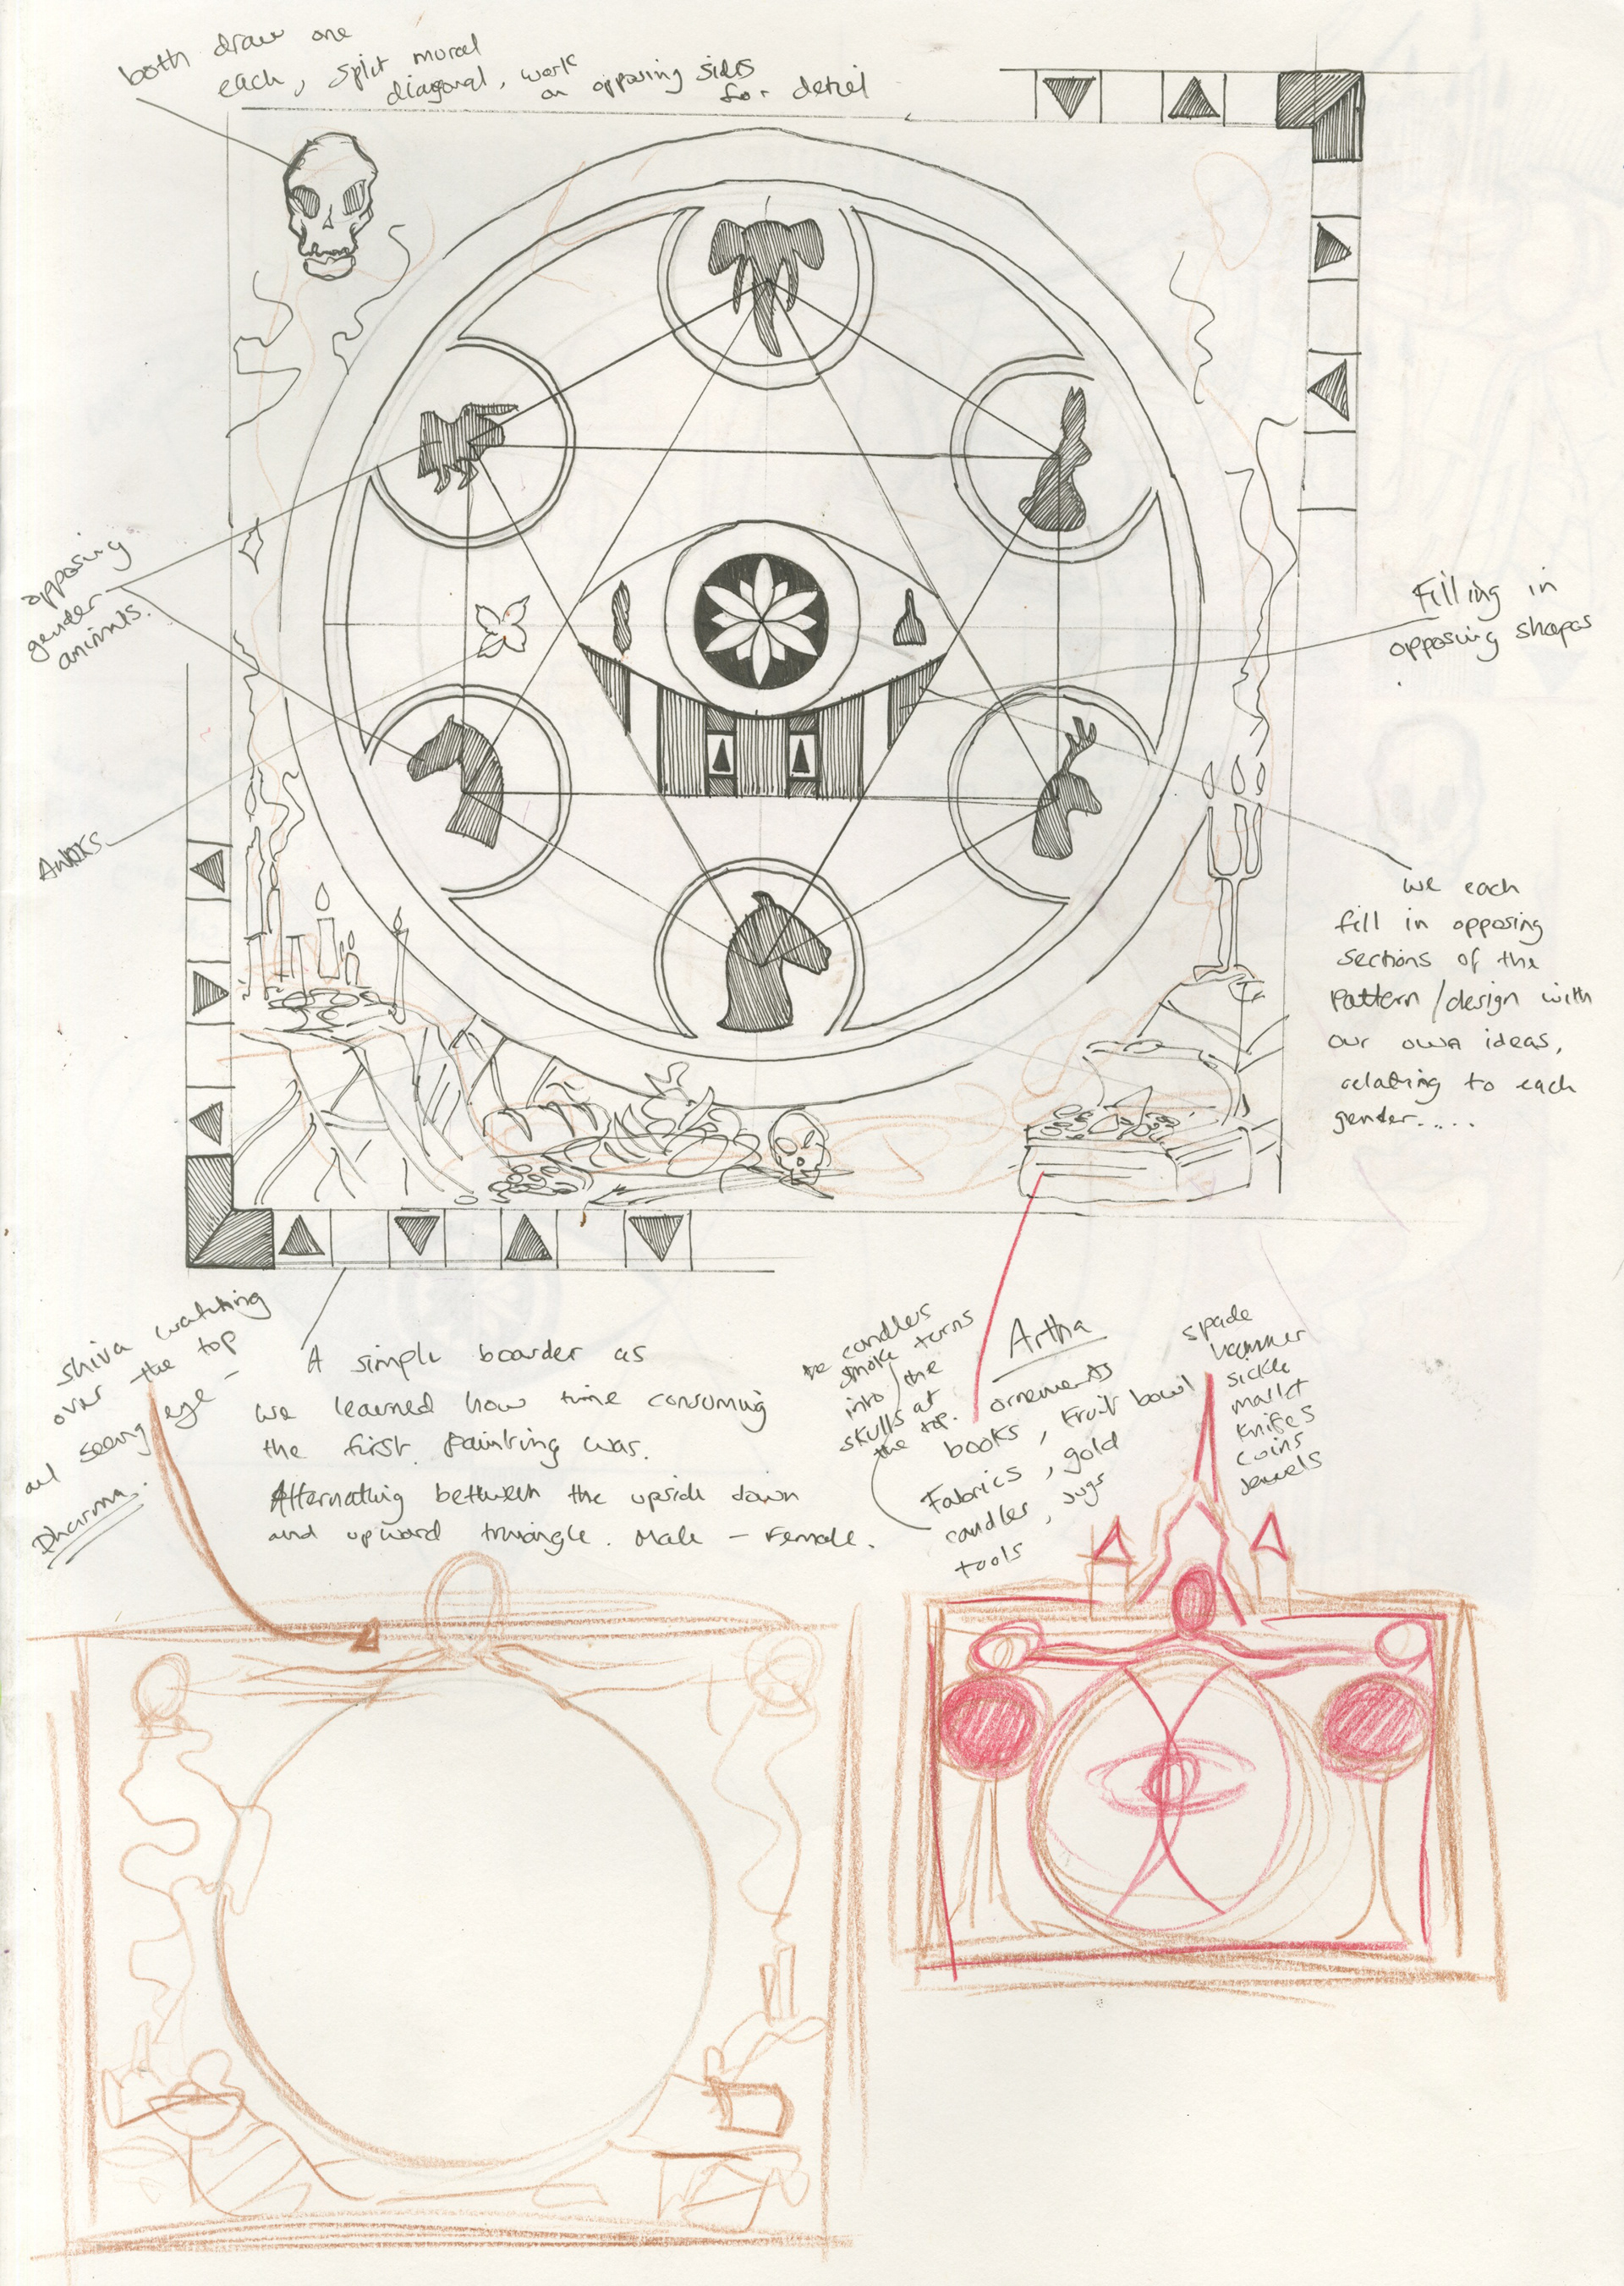 both draw one
each, split mural
diagonal, work
on opposing sides
for detail
opposing
gender
animals.
Filling in
opposing shapes
we each
fill in opposing
sections of the
pattern/design with
our own ideas,
relating to each
gender....
shiva watching
over the top
all seeing eye -
Dharma.
A simple boarder as
we learned how time consuming
the first painting was.
Alternating between the upside down
and upward triangle. Male - Female.
candles
smoke turns
into the
skulls at
the top.
Artha
ornements
books, fruit bowl
Fabrics, gold
candles, jugs
tools
spade
hammer
sickle
mallet
knifes
coins
Jewels